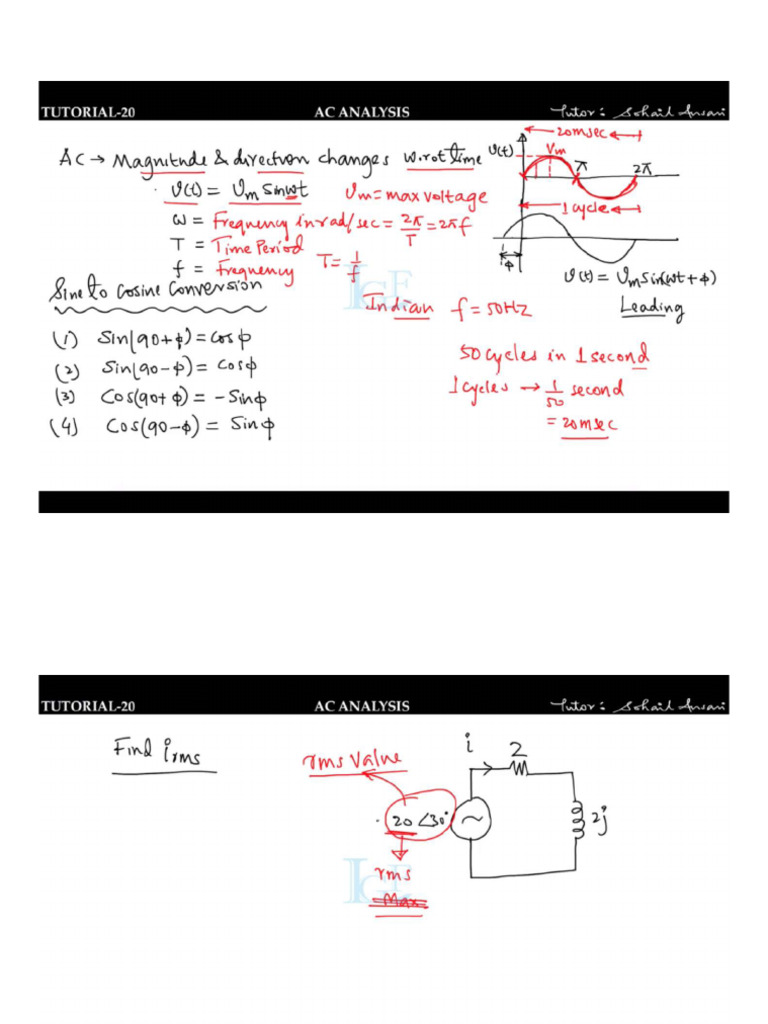 TUTORIAL-20 AC ANALYSIS Tutor: Sohail Ansari
AC → Magnitude & direction changes w.r.t time
v(t) = Vm Sinwt
Vm = max voltage
ω = Frequency in rad/sec = 2π/T = 2πf
T = Time Period
f = Frequency
T = 1/f
20msec
v(t)
Vm
π
2π
1 cycle
ϕ
v(t) = Vm sin(wt + ϕ)
Leading
Indian f = 50Hz
Sine to Cosine Conversion
(1) Sin(90+ϕ) = Cosϕ
(2) Sin(90-ϕ) = Cosϕ
(3) Cos(90+ϕ) = -Sinϕ
(4) Cos(90-ϕ) = Sinϕ
50 cycles in 1 second
1 cycles → 1/50 second
= 20msec
IGE
TUTORIAL-20 AC ANALYSIS Tutor: Sohail Ansari
Find irms
rms value
i
2
20∠30°
2j
rms
Max
IGE